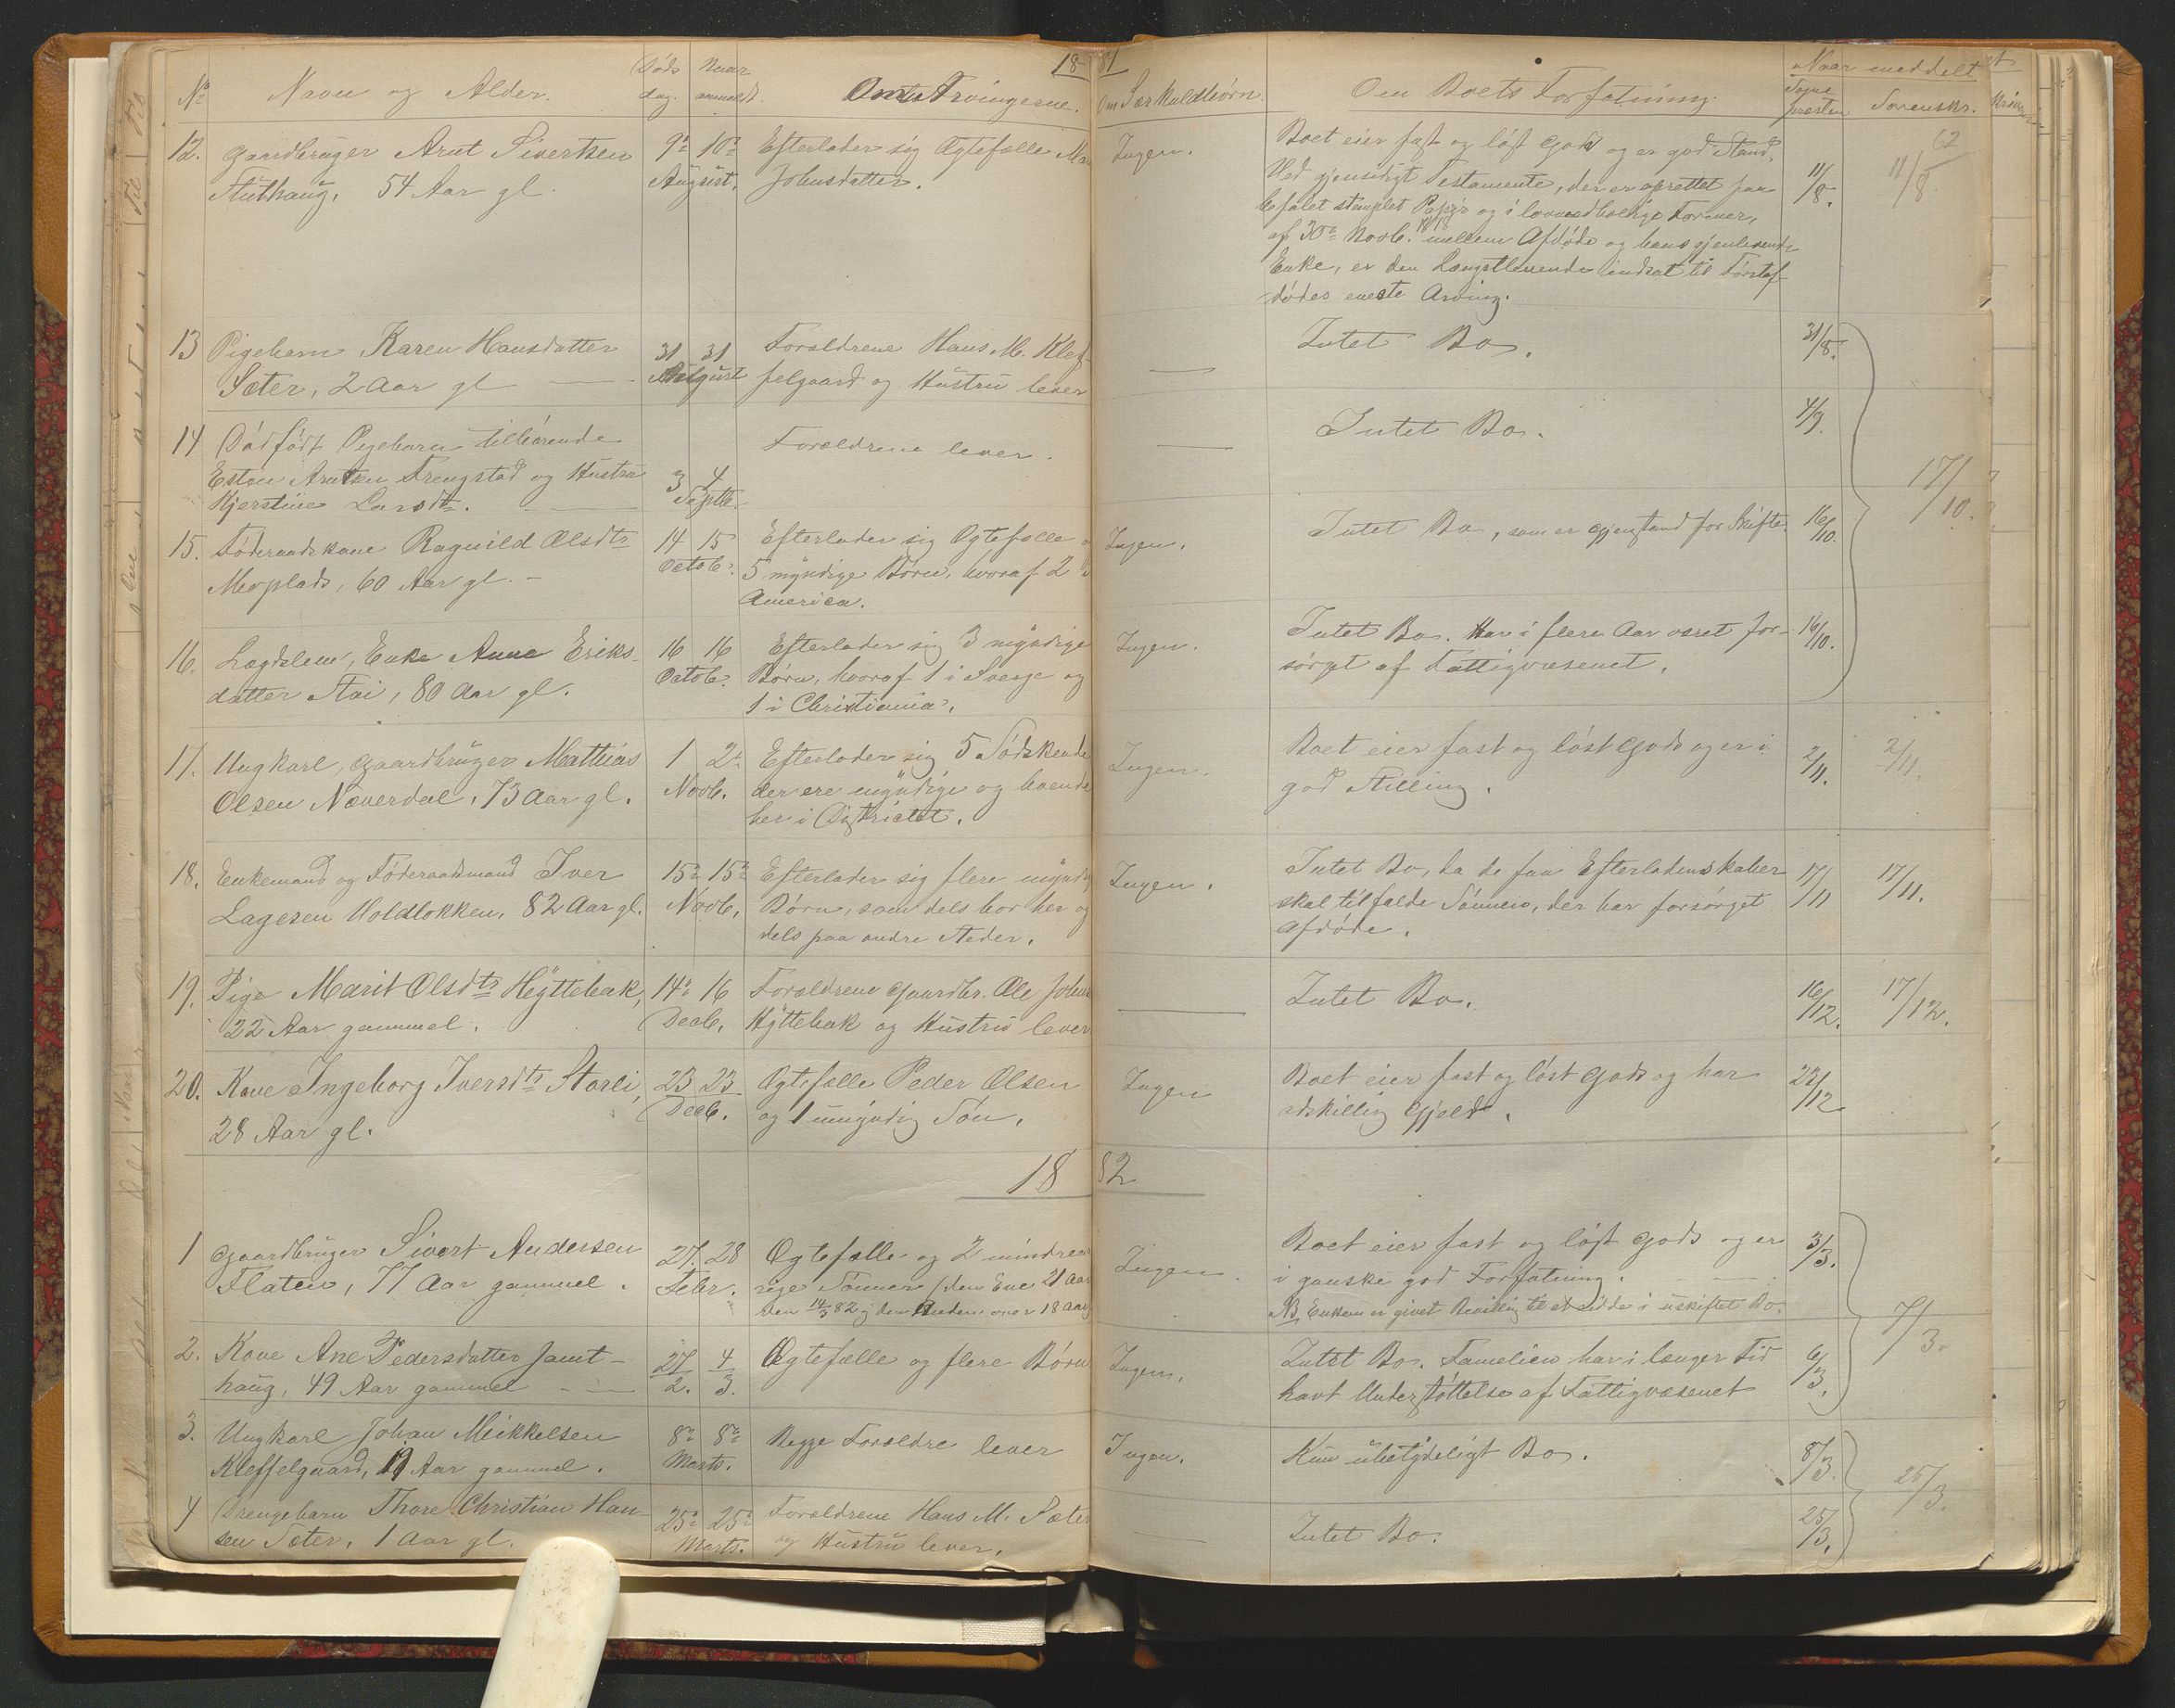 18 81
No Navn og Alder. Døds dag. Naar anmeldt. Om Arvingerne. Om Særkuldbørn. Om Boets Forfatning. Naar meddelt
Sogne presten Sorenskr.
62
12. Gaardbruger Arnt Sivertsen
Stuthaug, 54 Aar gl.
9de 10de
August.
Efterlader sig Ægtefælle Mar
Johnsdatter.
Ingen.
Boet eier fast og løst Gods og er god Stand.
Ved gjensidigt Testamente, der er oprettet paa
befalet stemplet Papir og i lovmedholdige Former,
af 30te Novb. mellem Afdøde og hans gjenlevende
Enke, er den Længstlevende indsat til Førstaf-
dødes eneste Arving.
11/8.
11/8.
13 Pigebarn Karen Hansdatter
Sæter, 2 Aar gl
31 31
August
Forældrene Hans M. Klef-
felgaard og Hustru lever
Intet Bo.
31/8.
14 Dødfødt Pigebarn tilhørende
Eston Arntsen Trengstad og Hustru
Kjerstine Larsdtr.
3 4
Septb.
Forældrene lever.
Intet Bo.
4/9.
17/10.
15. Føderaadskone Ragnild Olsdtr
Moplads, 60 Aar gl.
14 15
Octob.
Efterlader sig Ægtefælle o
5 myndige Børn, hvoraf 2 i
America.
Ingen.
Intet Bo, som er Gjenstand for Skifte.
16/10.
16. Lægdslem, Enke Anne Eriks-
datter Stai, 80 Aar gl.
16 16
Octob.
Efterlader sig 3 myndige
Børn, hvoraf 1 i Sverge og
1 i Christiania.
Ingen.
Intet Bo. Har i flere Aar været for-
sørget af Fattigvæsenet.
16/10.
17. Ungkarl, Gaardbruger Mattias
Olsen Næverdal, 73 Aar gl.
1 2de
Novb.
Efterlader sig 5 Sødskende
der ere myndige og boende
her i Districtet.
Ingen.
Boet eier fast og løst Gods og er i
god Stilling.
2/11.
2/11.
18. Enkemand og Føderaadsmand Iver
Lagesen Voldlokken, 82 Aar gl.
15de 15de
Novb.
Efterlader sig flere myndig
Børn, som dels bor her og
dels paa andre Steder.
Ingen.
Intet Bo, da de faa Efterladenskaber
skal tilfalde Sønnen, der har forsørget
Afdøde.
17/11
17/11.
19. Pige Marit Olsdtr Hÿttebak,
22 Aar gammel.
14de 16
Decb.
Forældrene Gaardbr. Ole Johns
Hÿttebak og Hustru lever
Intet Bo.
16/12.
17/12.
20. Kone Ingeborg Iversdtr Storli,
28 Aar gl.
23 23
Decb.
Ægtefælle Peder Olsen
og 1 umyndig Søn.
Ingen
Boet eier fast og løst Gods og har
adskillig Gjæld.
23/12
18 82
1 Gaardbruger Sivert Andersen
Flaten, 77 Aar gammel.
27. 28
Febr.
Ægtefælle og 2 mindreaa
rige Sønner (den Ene 21 Aar
den 14/3 82 og den Anden over 18 Aar
Ingen.
Boet eier fast og løst Gods og er
i ganske god Forfatning.
NB. Enken er givet Bevilling til at sidde i uskiftet Bo.
3/3.
7/3.
2. Kone Ane Pedersdatter Jamt-
haug, 49 Aar gammel
27/2. 4/3.
Ægtefælle og flere Børn
Ingen.
Intet Bo. Familien har i længer Tid
havt Understøttelse af Fattigvæsenet
6/3.
3. Ungkarl Johan Mikkelsen
Kleffelgaard, 19 Aar gammel.
8de 8de
Marts.
Begge Forældre lever
Ingen.
Kun ubetydeligt Bo.
8/3.
25/3.
4 Drengebarn Thore Christian Han-
sen Sæter, 1 Aar gl.
25de 25de
Marts.
Forældrene Hans M. Sæter
og Hustru lever.
Intet Bo.
25/3.